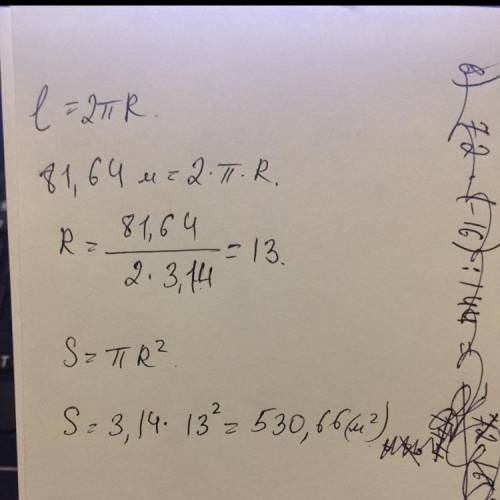 l = 2πR.
81,64 м = 2·π·R.
R = 81,64 / 2·3,14 = 13.
S = πR²
S = 3,14 · 13² = 530,66 (м²)
в) 72 · (-16) : 144 =